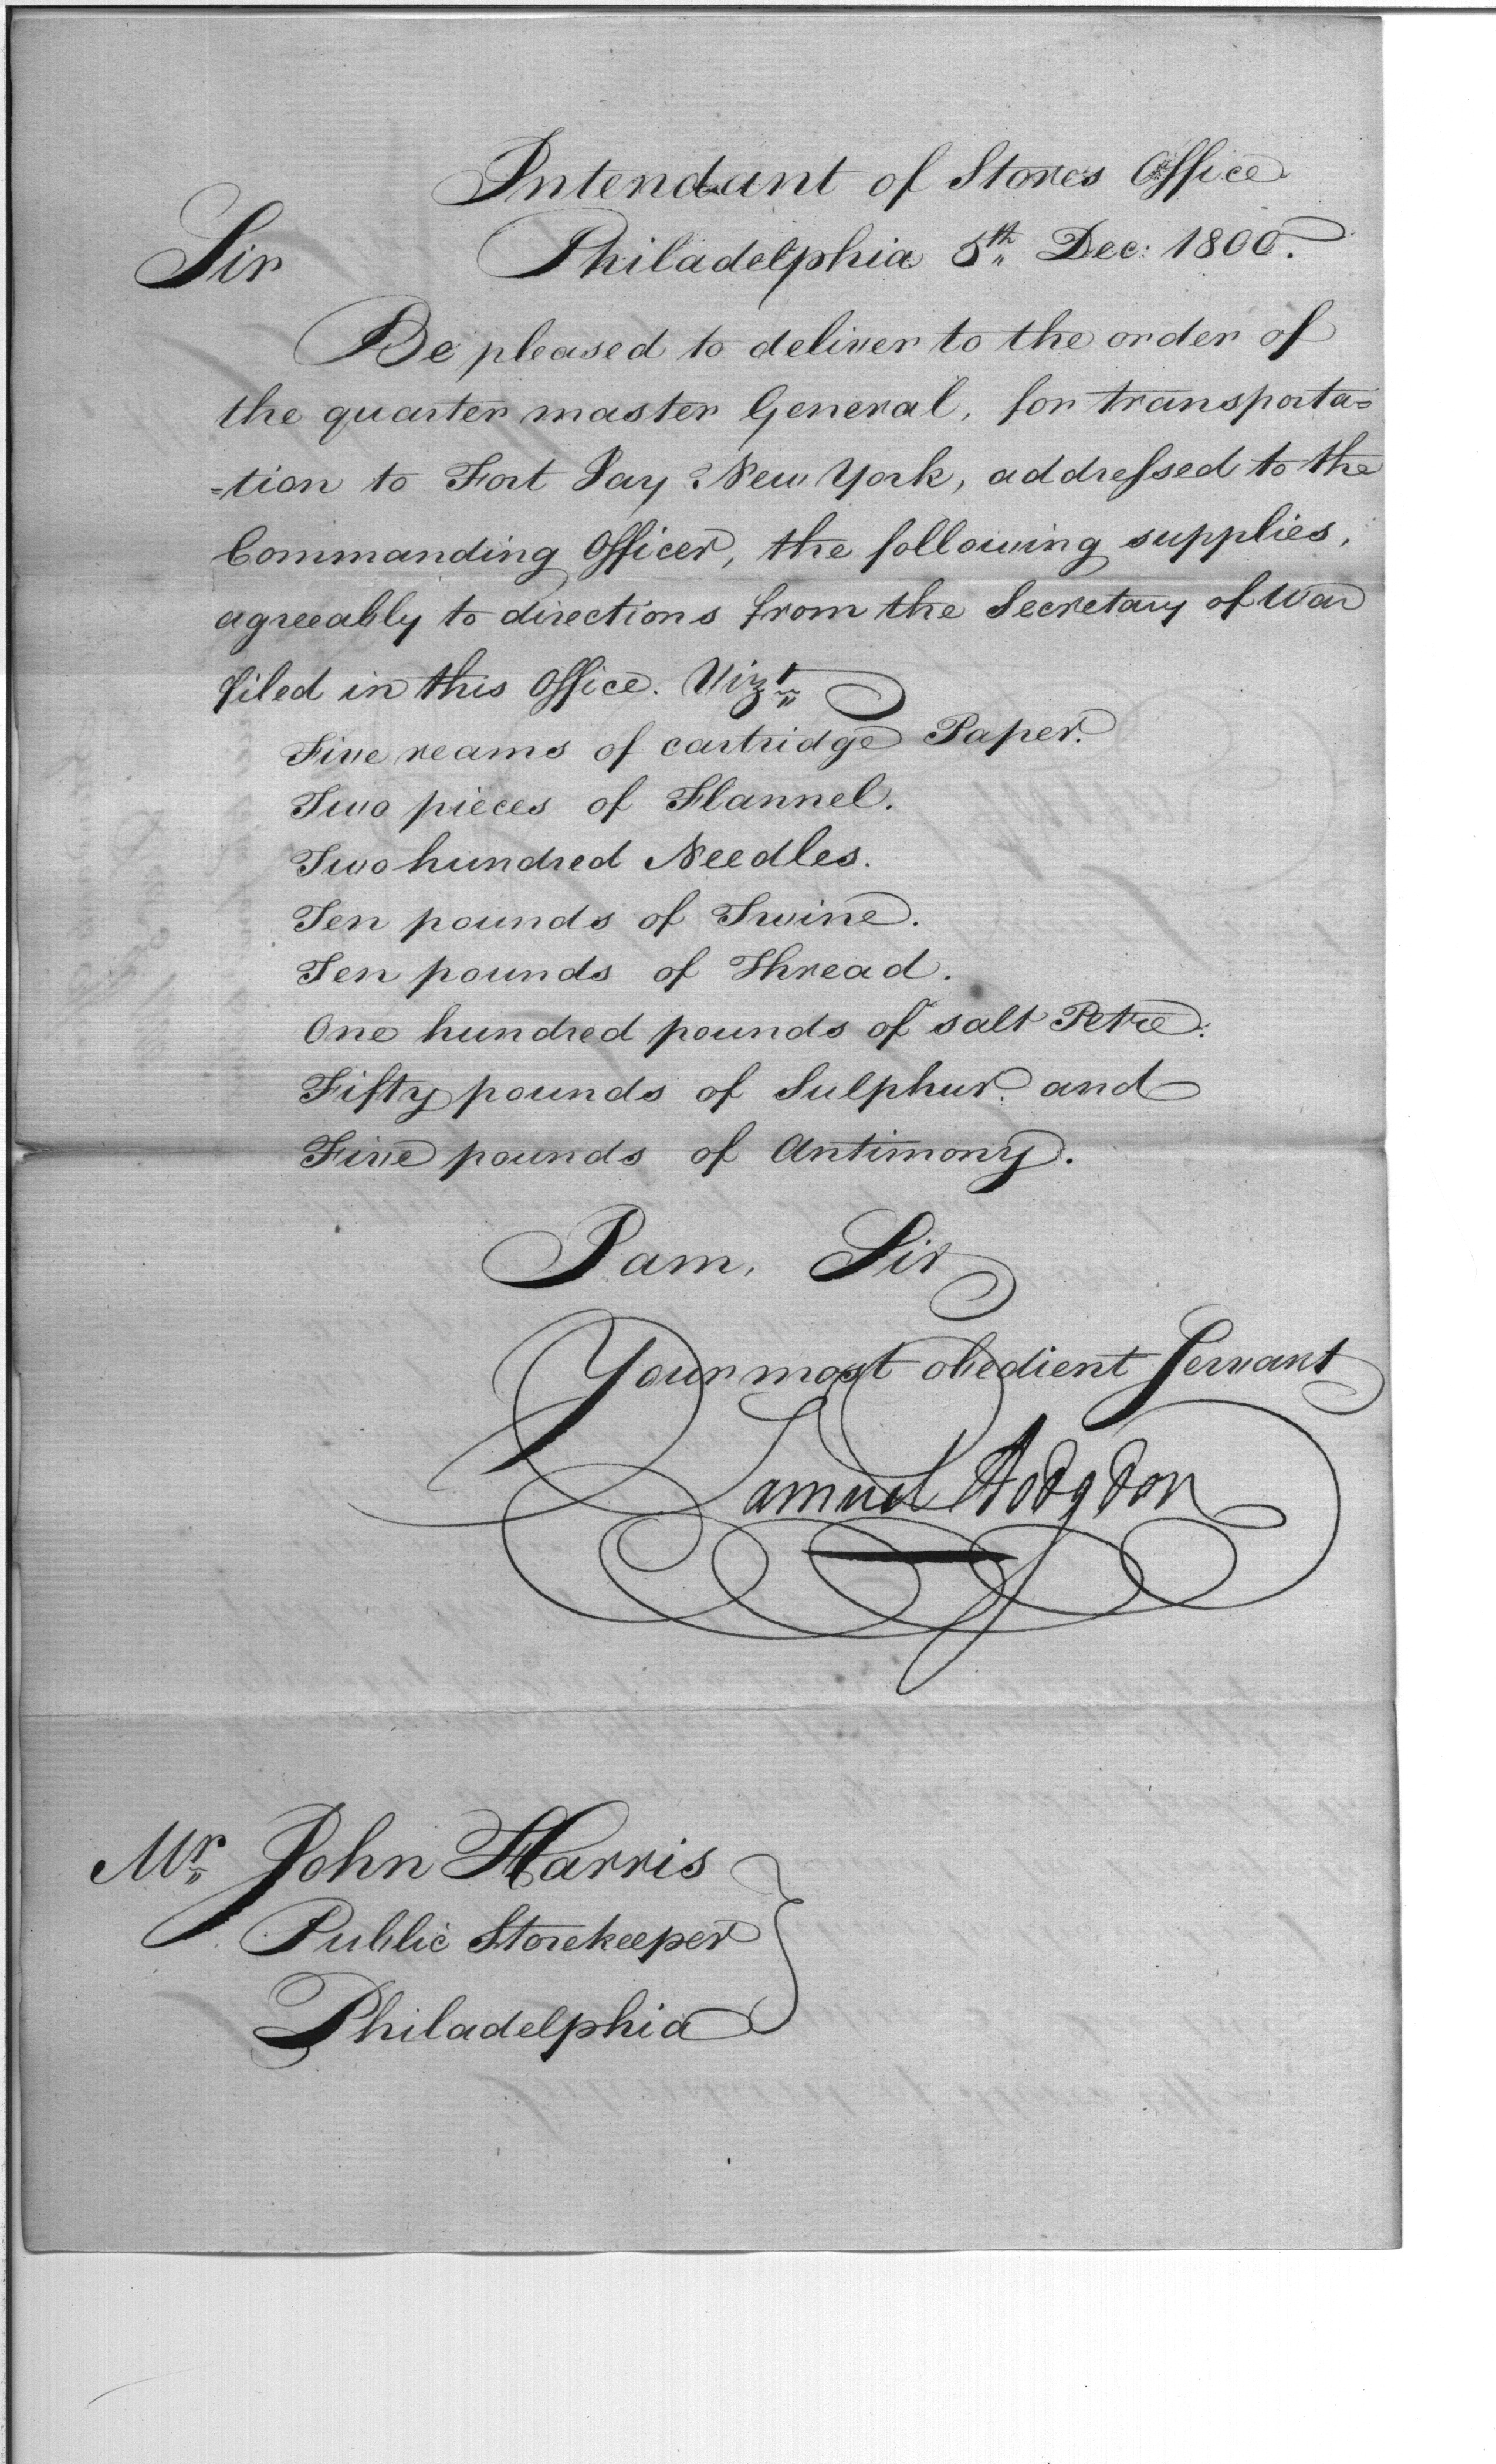 Intendant of Stores Office
Sir Philadelphia 5th Dec: 1800.
Be pleased to deliver to the order of
the quarter master General, for transporta=
=tion to Fort Jay New York, addressed to the
Commanding Officer, the following supplies,
agreeably to directions from the Secretary of War
filed in this Office. Vizt
Five reams of cartridge Paper.
Two pieces of Flannel.
Two hundred Needles.
Ten pounds of Twine.
Ten pounds of Thread.
One hundred pounds of salt Petre.
Fifty pounds of Sulphur. and
Five pounds of Antimony.
I am, Sir
Your most obedient Servant
Samuel Hodgdon
Mr John Harris
Public Storekeeper
Philadelphia